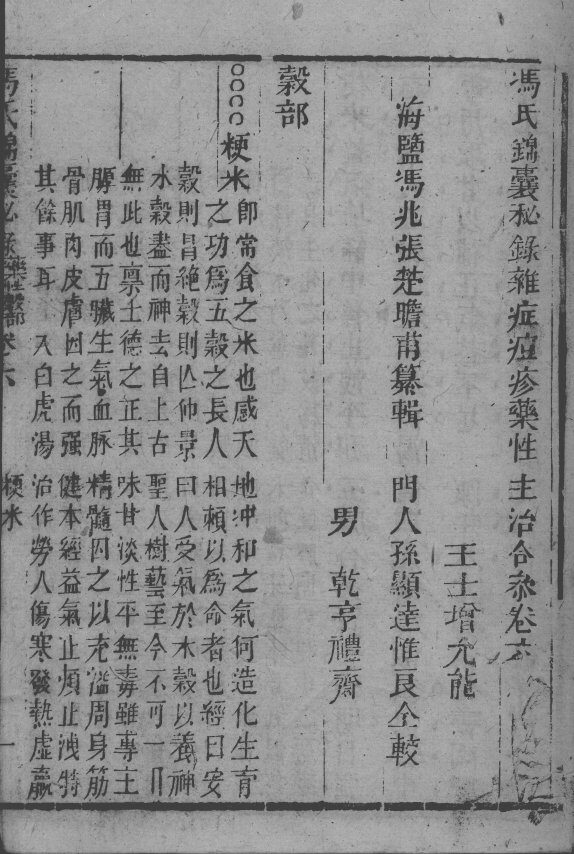 馮氏錦囊秘錄雜症痘疹藥性主治合參卷六
王士增允龍
海鹽馮兆張楚瞻甫纂輯 門人孫顯達惟良仝較
男 乾亨禮齋
穀部
○○○○粳米 即常食之米也感天地冲和之氣何造化生育
之功為五穀之長人相賴以為命者也經曰安
穀則昌絕穀則亾仲景曰人受氣於水穀以養神
水穀盡而神去自上古聖人樹藝至今不可一日
無此也禀土德之正其味甘淡性平無毒雖專主
脾胃而五臟生氣血脉精髓因之以充溢周身筋
骨肌肉皮膚因之而强健本經益氣止煩止洩特
其餘事耳 入白虎湯治作勞人傷寒發熱虛羸
馮氏錦囊秘錄 藥性穀部卷六 粳米 一